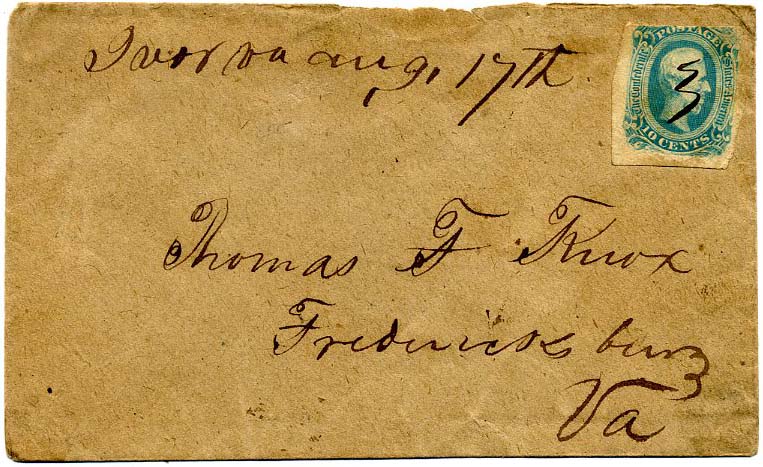 Ivor va aug, 17th.
POSTAGE
The Confederate States of America
10 CENTS
Thomas F Knox
Fredericksburg
Va